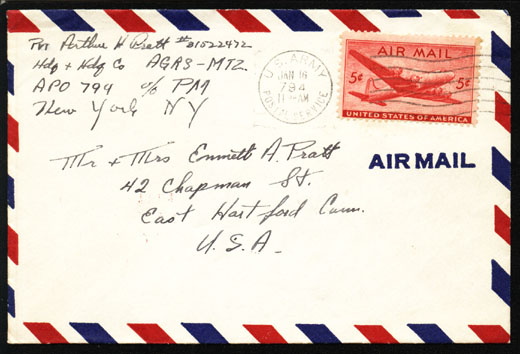 Pvt Arthur H Pratt # 31522472
Hdq + Hdq Co AGRS-MTZ.
APO 794 c/o PM
New York NY
U.S. ARMY
JAN 16
794
11-AM
POSTAL SERVICE
AIR MAIL
5¢ 5¢
UNITED STATES OF AMERICA
AIR MAIL
Mr + Mrs Emmett A. Pratt
42 Chapman St.
East Hartford Conn.
U.S.A.